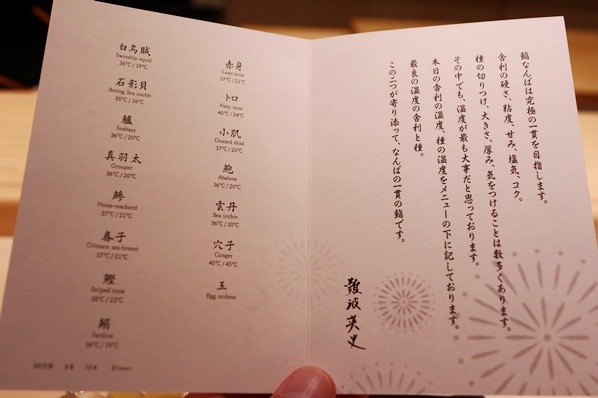 白烏賊
Swordtip squid
36℃ / 19℃
石影貝
Bering Sea cockle
35℃ / 16℃
鱸
Seabass
36℃ / 20℃
真羽太
Grouper
36℃ / 20℃
鯵
Horse-mackerel
37℃ / 21℃
春子
Crimson sea-bream
37℃ / 22℃
鰹
Striped tuna
38℃ / 23℃
鰯
Sardine
36℃ / 19℃
赤身
Lean tuna
37℃ / 22℃
トロ
Fatty tuna
40℃ / 24℃
小肌
Gizzard shad
37℃ / 20℃
鮑
Abalone
36℃ / 20℃
雲丹
Sea urchin
36℃ / 20℃
穴子
Conger
40℃ / 45℃
玉
Egg omlette
Dinner
鮨なんばは究極の一貫を目指します。
舎利の硬さ、粘度、甘み、塩気、コク。
種の切りつけ、大きさ、厚み、気をつけることは数多くあります。
その中でも、温度が最も大事だと思っております。
本日の舎利の温度、種の温度をメニューの下に記しております。
最良の温度の舎利と種。
この二つが寄り添って、なんばの一貫の鮨です。
難波英史